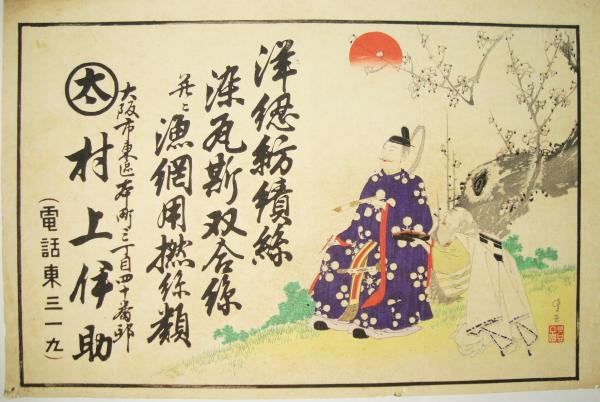 洋緦紡績絲
染瓦斯双合絲
并ニ漁網用撚絲類
大阪市東區本町三丁目四十番邸
太
村上伊助
(電話東三一九)